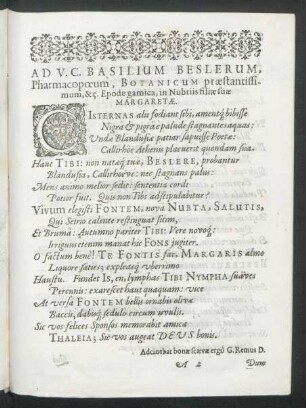 AD V.C. BASILIUM BESLERUM,
Pharmacopœum, BOTANICUM præstantissi-
mum, &ç. Epode gamica, in Nubtiis filiæ suæ
MARGARETÆ.
CISTERNAS alii fodiant sibi, amentq́ bibisse
Nigrâ & pigrâ è palude stagnante aquas:
Undæ Blandusiæ patiar sapuisse Poëtæ:
Callirhöe Athenis placuerit quondam suis.
Haut TIBI: non nataq́ tuæ, BESLERE, probantur
Blandusia, Callirhöe ve: nec stagnans palus:
Mens animo melior sedit: sententia cordi
Potior fuit. Quis non TIBI adstipulabitur?
Vivum elegisti FONTEM, novæ NUBTÆ, SALUTIS,
Qui Seirio calente restinguat sitim,
Et Brumâ: Autumno pariter TIBI: Vere novoq́
Irriguo etenim manat hic FONS jugiter.
O factum bene! TE FONTIS suæ MARGARIS almo
Liquore satiet; expleatq́ uberrimo
Haustu. Fundet IS, en, lymphas TIBI NYMPHA suäves
Perennis: exarescet haut quaquam: vice
At versâ FONTEM bellis ornabis olivæ
Baccis, dabisq́ sedulò circum uvulis.
Sic vos felices Sponsos memorabit amica
THALEIA; Sic vos augeat DEUS bonis.
Adcinebat bonæ scævæ ergô G. Remus D.
A 2 Dum